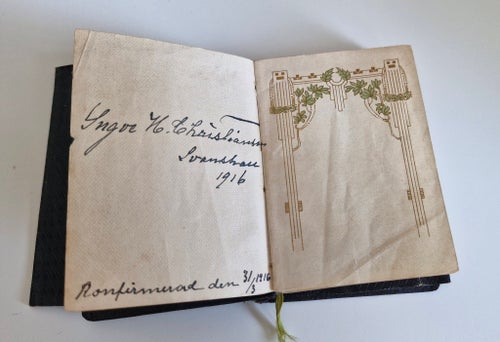 Yngve H. Christianson
Svanskau
1916
Konfirmerad den 31/3 1916